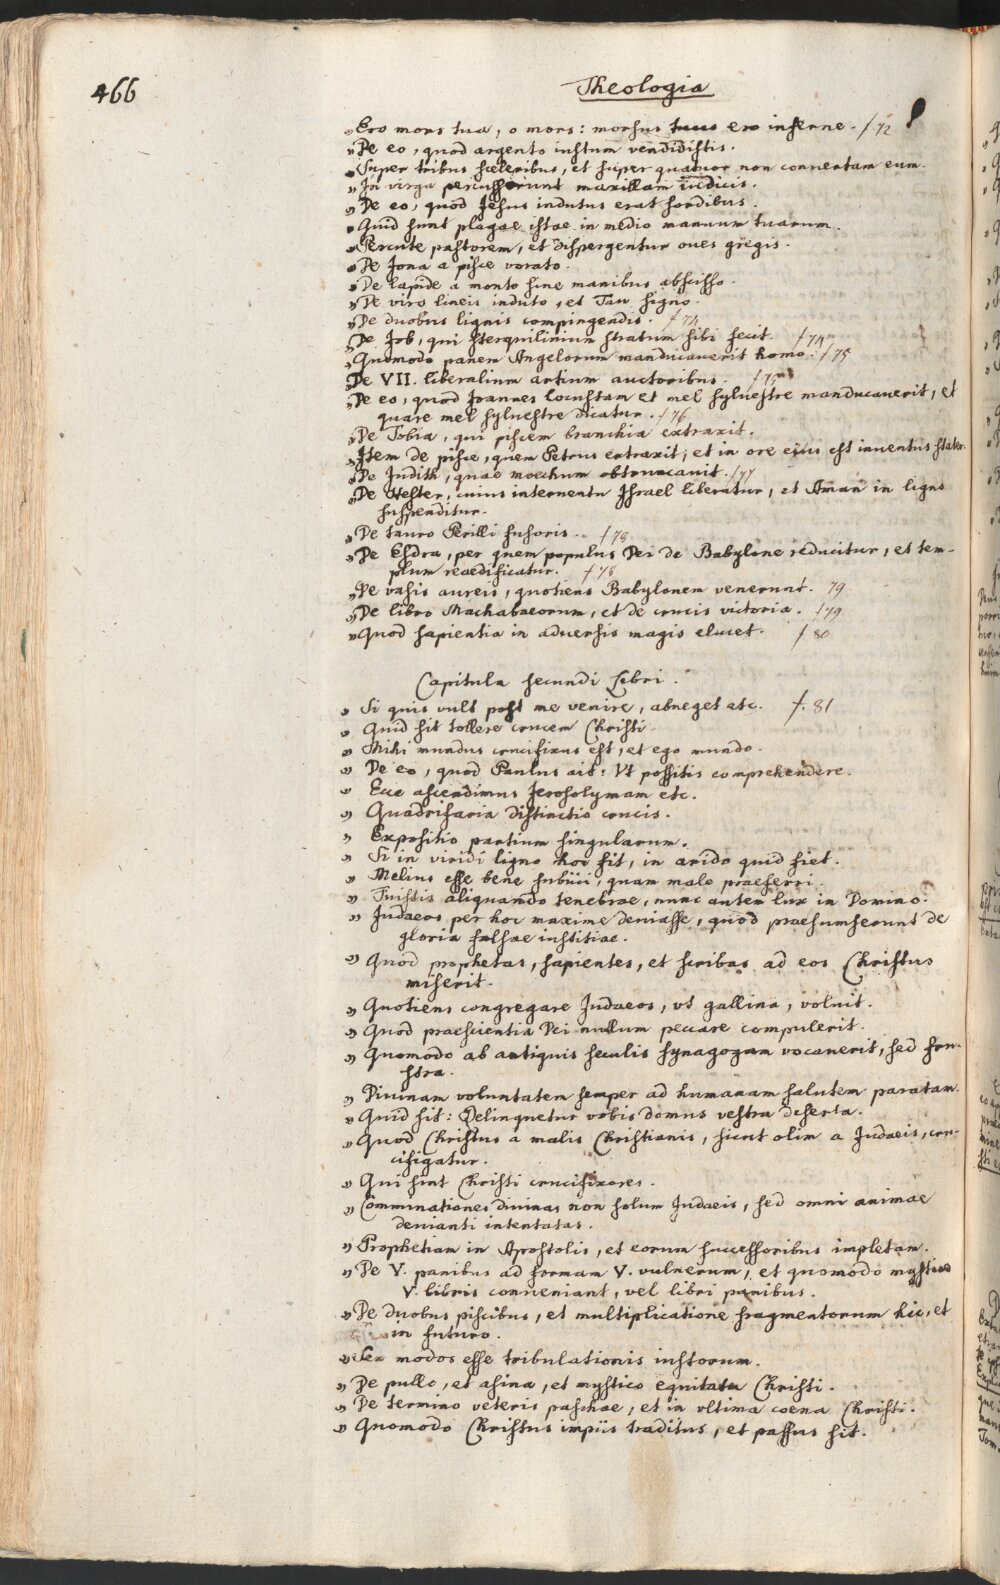 466
Theologia
„ Ero mors tua, o mors: morsus tuus ero inferne. f. 72
„ De eo, quod argento iustum vendidistis.
„ Super tribus sceleribus, et super quatuor non conuertam eum.
„ In virga percusserunt maxillam iudicis.
„ De eo, quod Jesus indutus erat sordibus.
„ Quid sunt plagae istae in medio manuum tuarum.
„ Percute pastorem, et dispergentur oues gregis.
„ De Jona a pisce vorato.
„ De lapide a monte sine manibus abscisso.
„ De viro lineis induto, et Tau signo.
„ De duobus lignis compingendis. f 74
„ De Job, qui sterquilinium stratum sibi fecit. f 74
„ Quomodo panem Angelorum manducauerit homo. f 75
„ De VII. liberalium artium auctoribus. f 75
„ De eo, quod Joannes locustam et mel syluestre manducauerit, et
quare mel syluestre dicatur. f 76
„ De Tobia, qui piscem branchia extraxit.
„ Item de pisce, quem Petrus extraxit; et in ore eius est inuentus stater.
„ De Judith, quae moechum obtruncauit. f 77
„ De Hester, cuius interuentu Israel liberatur, et Aman in ligno
suspenditur.
„ De tauro Perilli fusoris. f 78
„ De Esdra, per quem populus Dei de Babylone reducitur, et tem-
plum reaedificatur. f 78
„ De vasis aureis, quotiens Babylonem venerunt. 79
„ De libro Machabaeorum, et de crucis victoria. f 79
„ Quod sapientia in aduersis magis elucet. f 80
Capitula secundi Libri.
„ Si quis vult post me venire, abneget etc. f. 81
„ Quid sit tollere crucem Christi.
„ Mihi mundus crucifixus est, et ego mundo.
„ De eo, quod Paulus ait: Vt possitis comprehendere.
„ Ecce ascendimus Jerosolymam etc.
„ Quadrifaria distinctio crucis.
„ Expositio partium singularum.
„ Si in viridi ligno hoc fit, in arido quid fiet.
„ Melius esse bene subiici, quam male praeferri.
„ Fuistis aliquando tenebrae, nunc autem lux in Domino.
„ Judaeos per hoc maxime deuiasse, quod praesumserunt de
gloria falsae iustitiae.
„ Quod prophetas, sapientes, et scribas ad eos Christus
miserit.
„ Quotiens congregare Judaeos, vt gallina, voluit.
„ Quod praescientia Dei nullum peccare compulerit.
„ Quomodo ab antiquis seculis synagogam vocauerit, sed fru-
stra.
„ Diuinam voluntatem semper ad humanam salutem paratam.
„ Quid sit: Relinquetur vobis domus vestra deserta.
„ Quod Christus a malis Christianis, sicut olim a Judaeis, cru-
cifigatur.
„ Qui sint Christi crucifixores.
„ Comminationes diuinas non solum Judaeis, sed omni animae
deuianti intentatas.
„ Prophetiam in Apostolis, et eorum successoribus impletam.
„ De V. panibus ad formam V. vulnerum, et quomodo mystice
V. libris conueniant, vel libri panibus.
„ De duobus piscibus, et multiplicatione fragmentorum hic, et
in futuro.
„ Sex modos esse tribulationis iustorum.
„ De pullo, et asina, et mystico equitatu Christi.
„ De termino veteris paschae, et in vltima coena Christi.
„ Quomodo Christus impiis traditus, et passus sit.